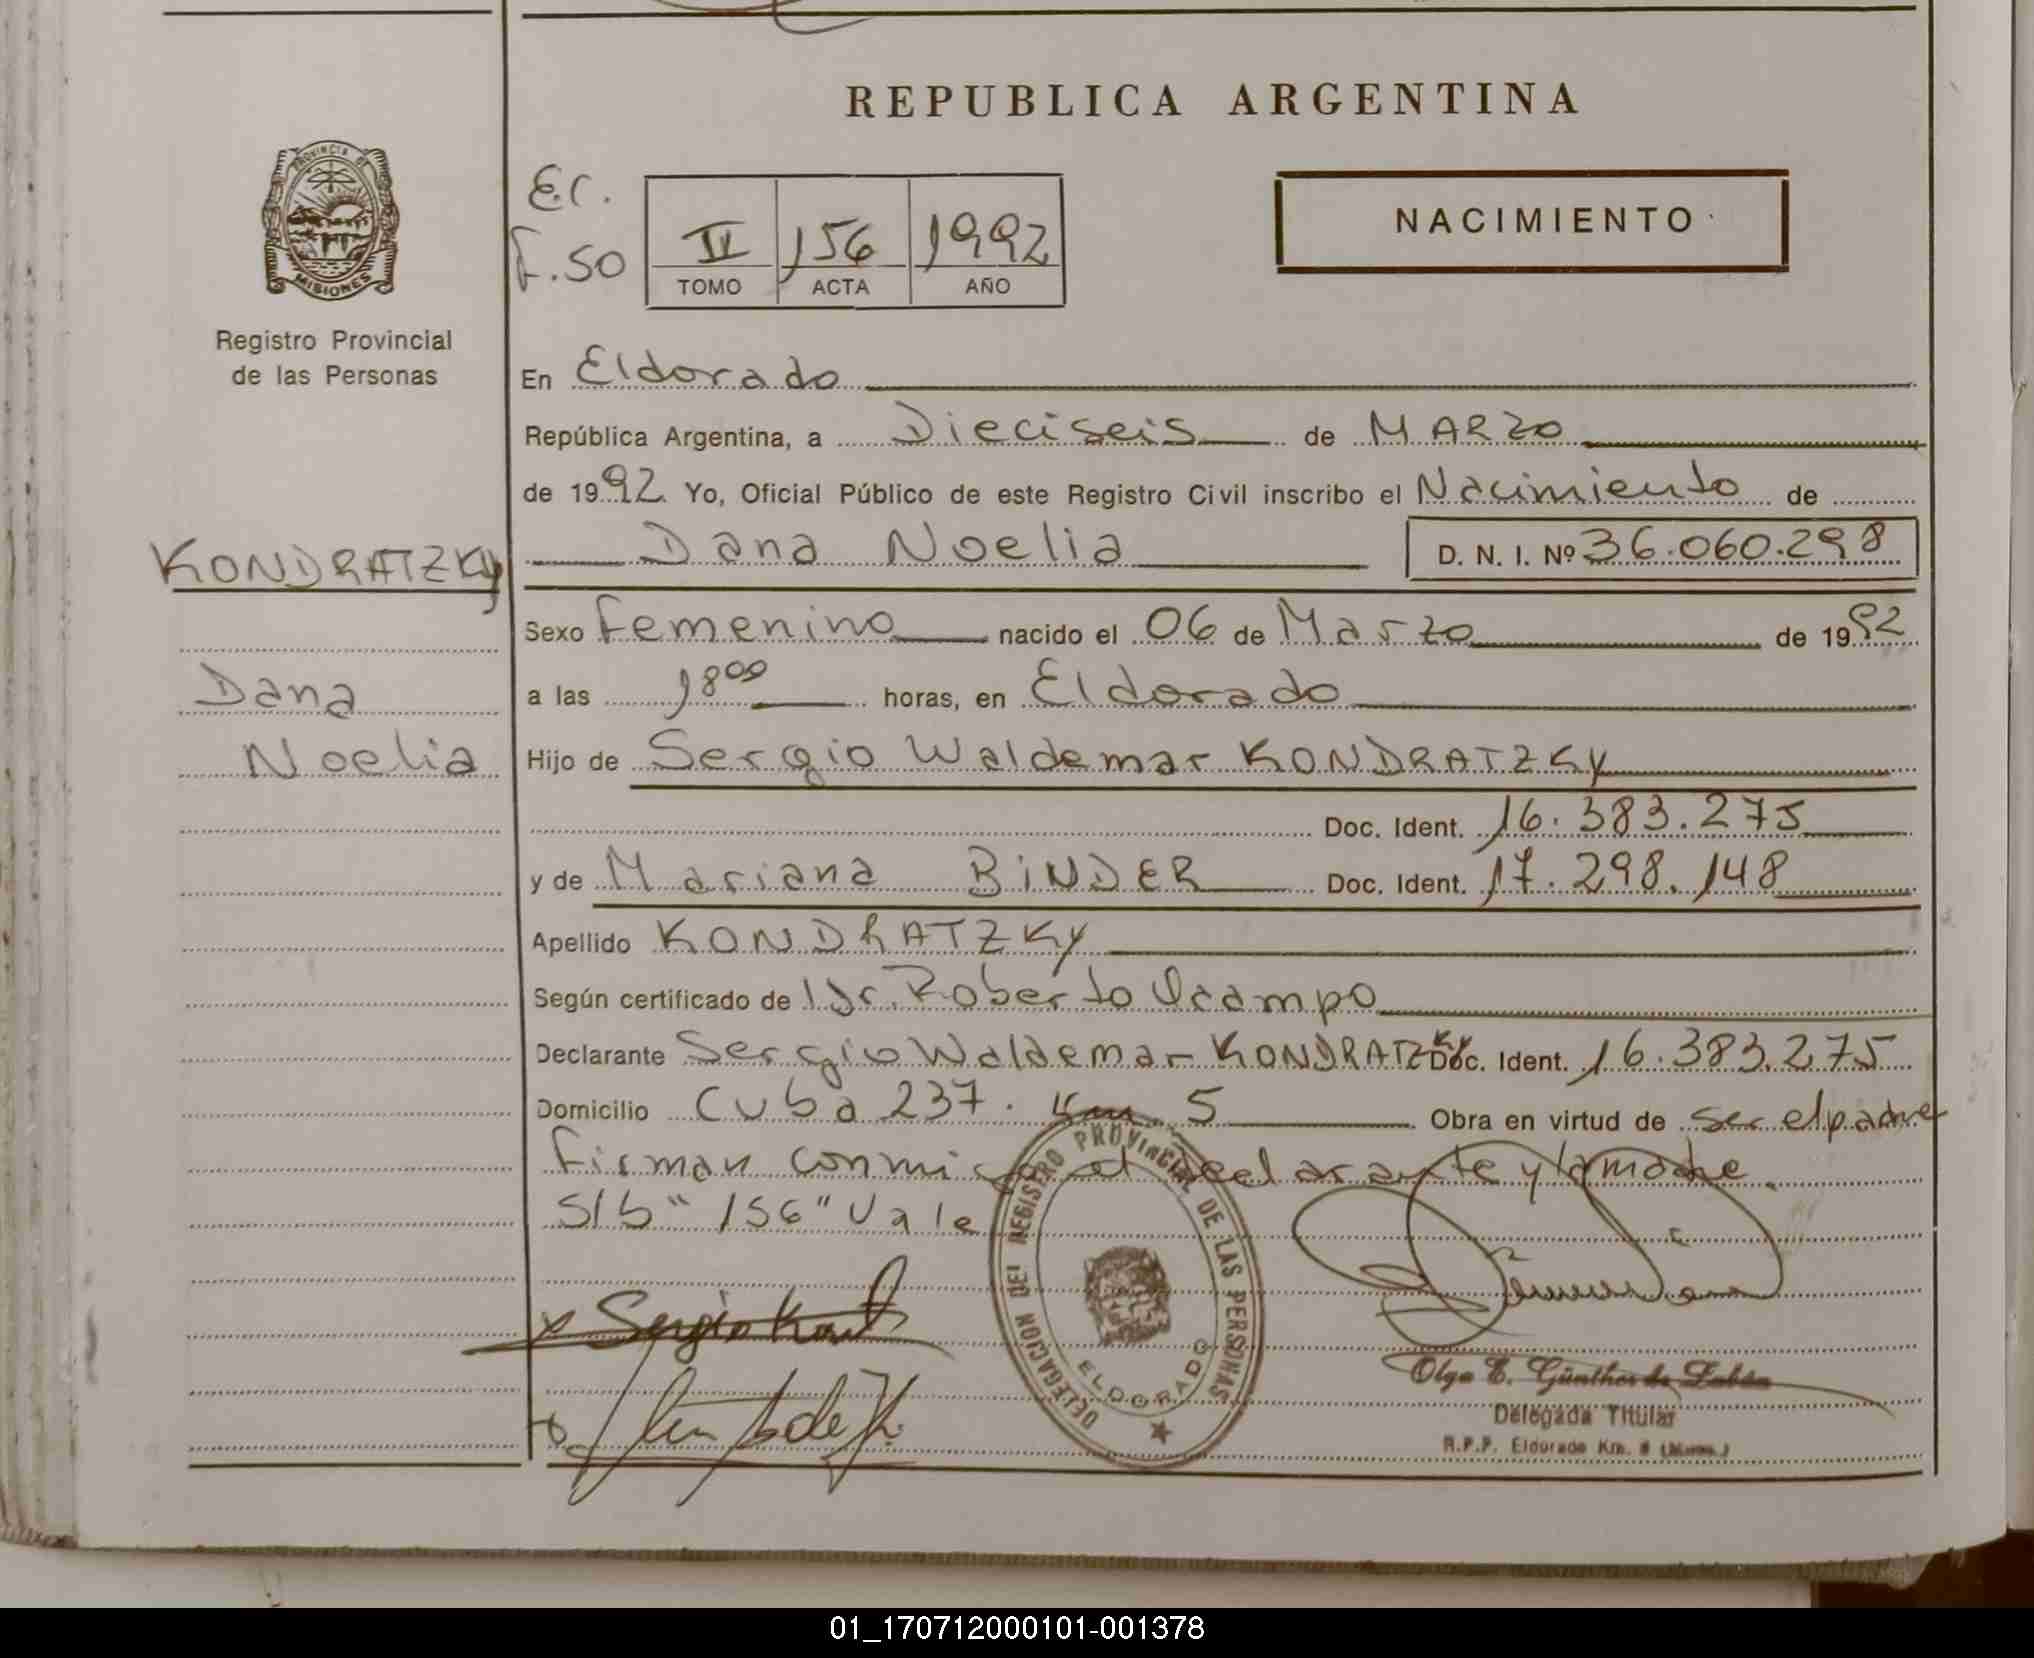 REPUBLICA ARGENTINA
PROVINCIA DE MISIONES
Registro Provincial
de las Personas
E.C.
F.50
II 156 1992
TOMO ACTA AÑO
NACIMIENTO
En Eldorado
República Argentina, a Dieciseis de MARZO
de 1992 Yo, Oficial Público de este Registro Civil inscribo el Nacimiento de
KONDRATZKY
Dana Noelia D. N. I. Nº 36.060.298
Sexo Femenino nacido el 06 de Marzo de 1992
Dana
Noelia
a las 18⁰⁰ horas, en Eldorado
Hijo de Sergio Waldemar KONDRATZKY
Doc. Ident. 16.383.275
y de Mariana BINDER Doc. Ident. 17.298.148
Apellido KONDRATZKY
Según certificado de Dr. Roberto Ocampo
Declarante Sergio Waldemar KONDRATZKY Doc. Ident. 16.383.275
Domicilio Cuba 237. Km. 5 Obra en virtud de ser el padre
Firman conmigo el declarante y la madre.
S/b "156" Vale
DELEGACION DEL REGISTRO PROVINCIAL DE LAS PERSONAS
ELDORADO
x Sergio
Olga E. Günther de
Delegada Titular
R.P.P. Eldorado Km.
01_170712000101-001378